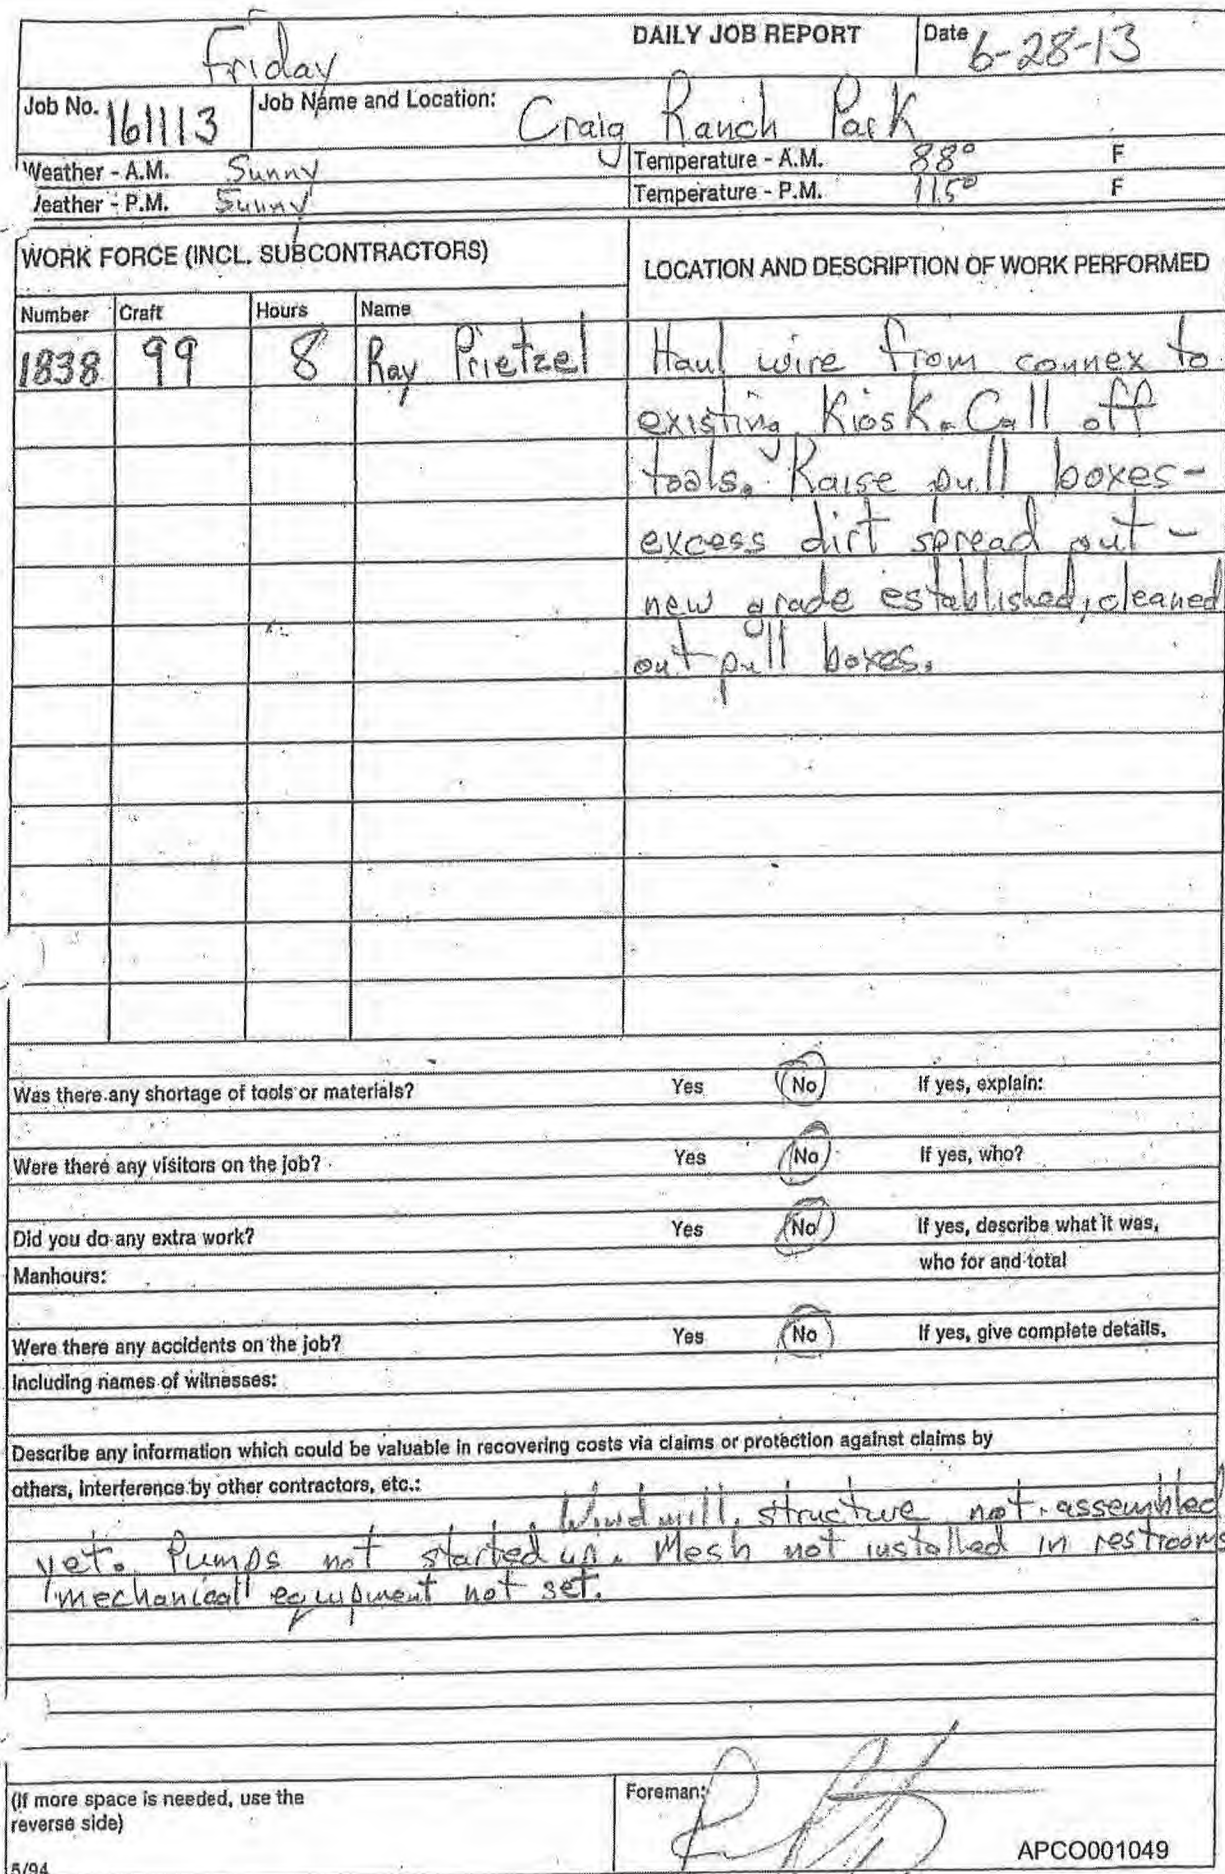 DAILY JOB REPORT
Date 6-28-13
Friday
Job No. 161113 Job Name and Location: Craig Ranch Park
Weather - A.M. Sunny Temperature - A.M. 88° F
/eather - P.M. Sunny Temperature - P.M. 115° F
WORK FORCE (INCL. SUBCONTRACTORS)
LOCATION AND DESCRIPTION OF WORK PERFORMED
Number Craft Hours Name
1838 99 8 Ray Prietzel
Haul wire from connex to
existing Kiosk. Call off
tools. Raise pull boxes-
excess dirt spread out -
new grade established, cleaned
out pull boxes.
Was there any shortage of tools or materials? Yes No If yes, explain:
Were there any visitors on the job? Yes No If yes, who?
Did you do any extra work? Yes No If yes, describe what it was,
who for and total
Manhours:
Were there any accidents on the job? Yes No If yes, give complete details,
Including names of witnesses:
Describe any information which could be valuable in recovering costs via claims or protection against claims by
others, interference by other contractors, etc.:
Windmill structure not assembled
yet. Pumps not started up. Mesh not installed in restrooms
"mechanical" equipment not set.
(If more space is needed, use the
reverse side)
Foreman:
APCO001049
5/94